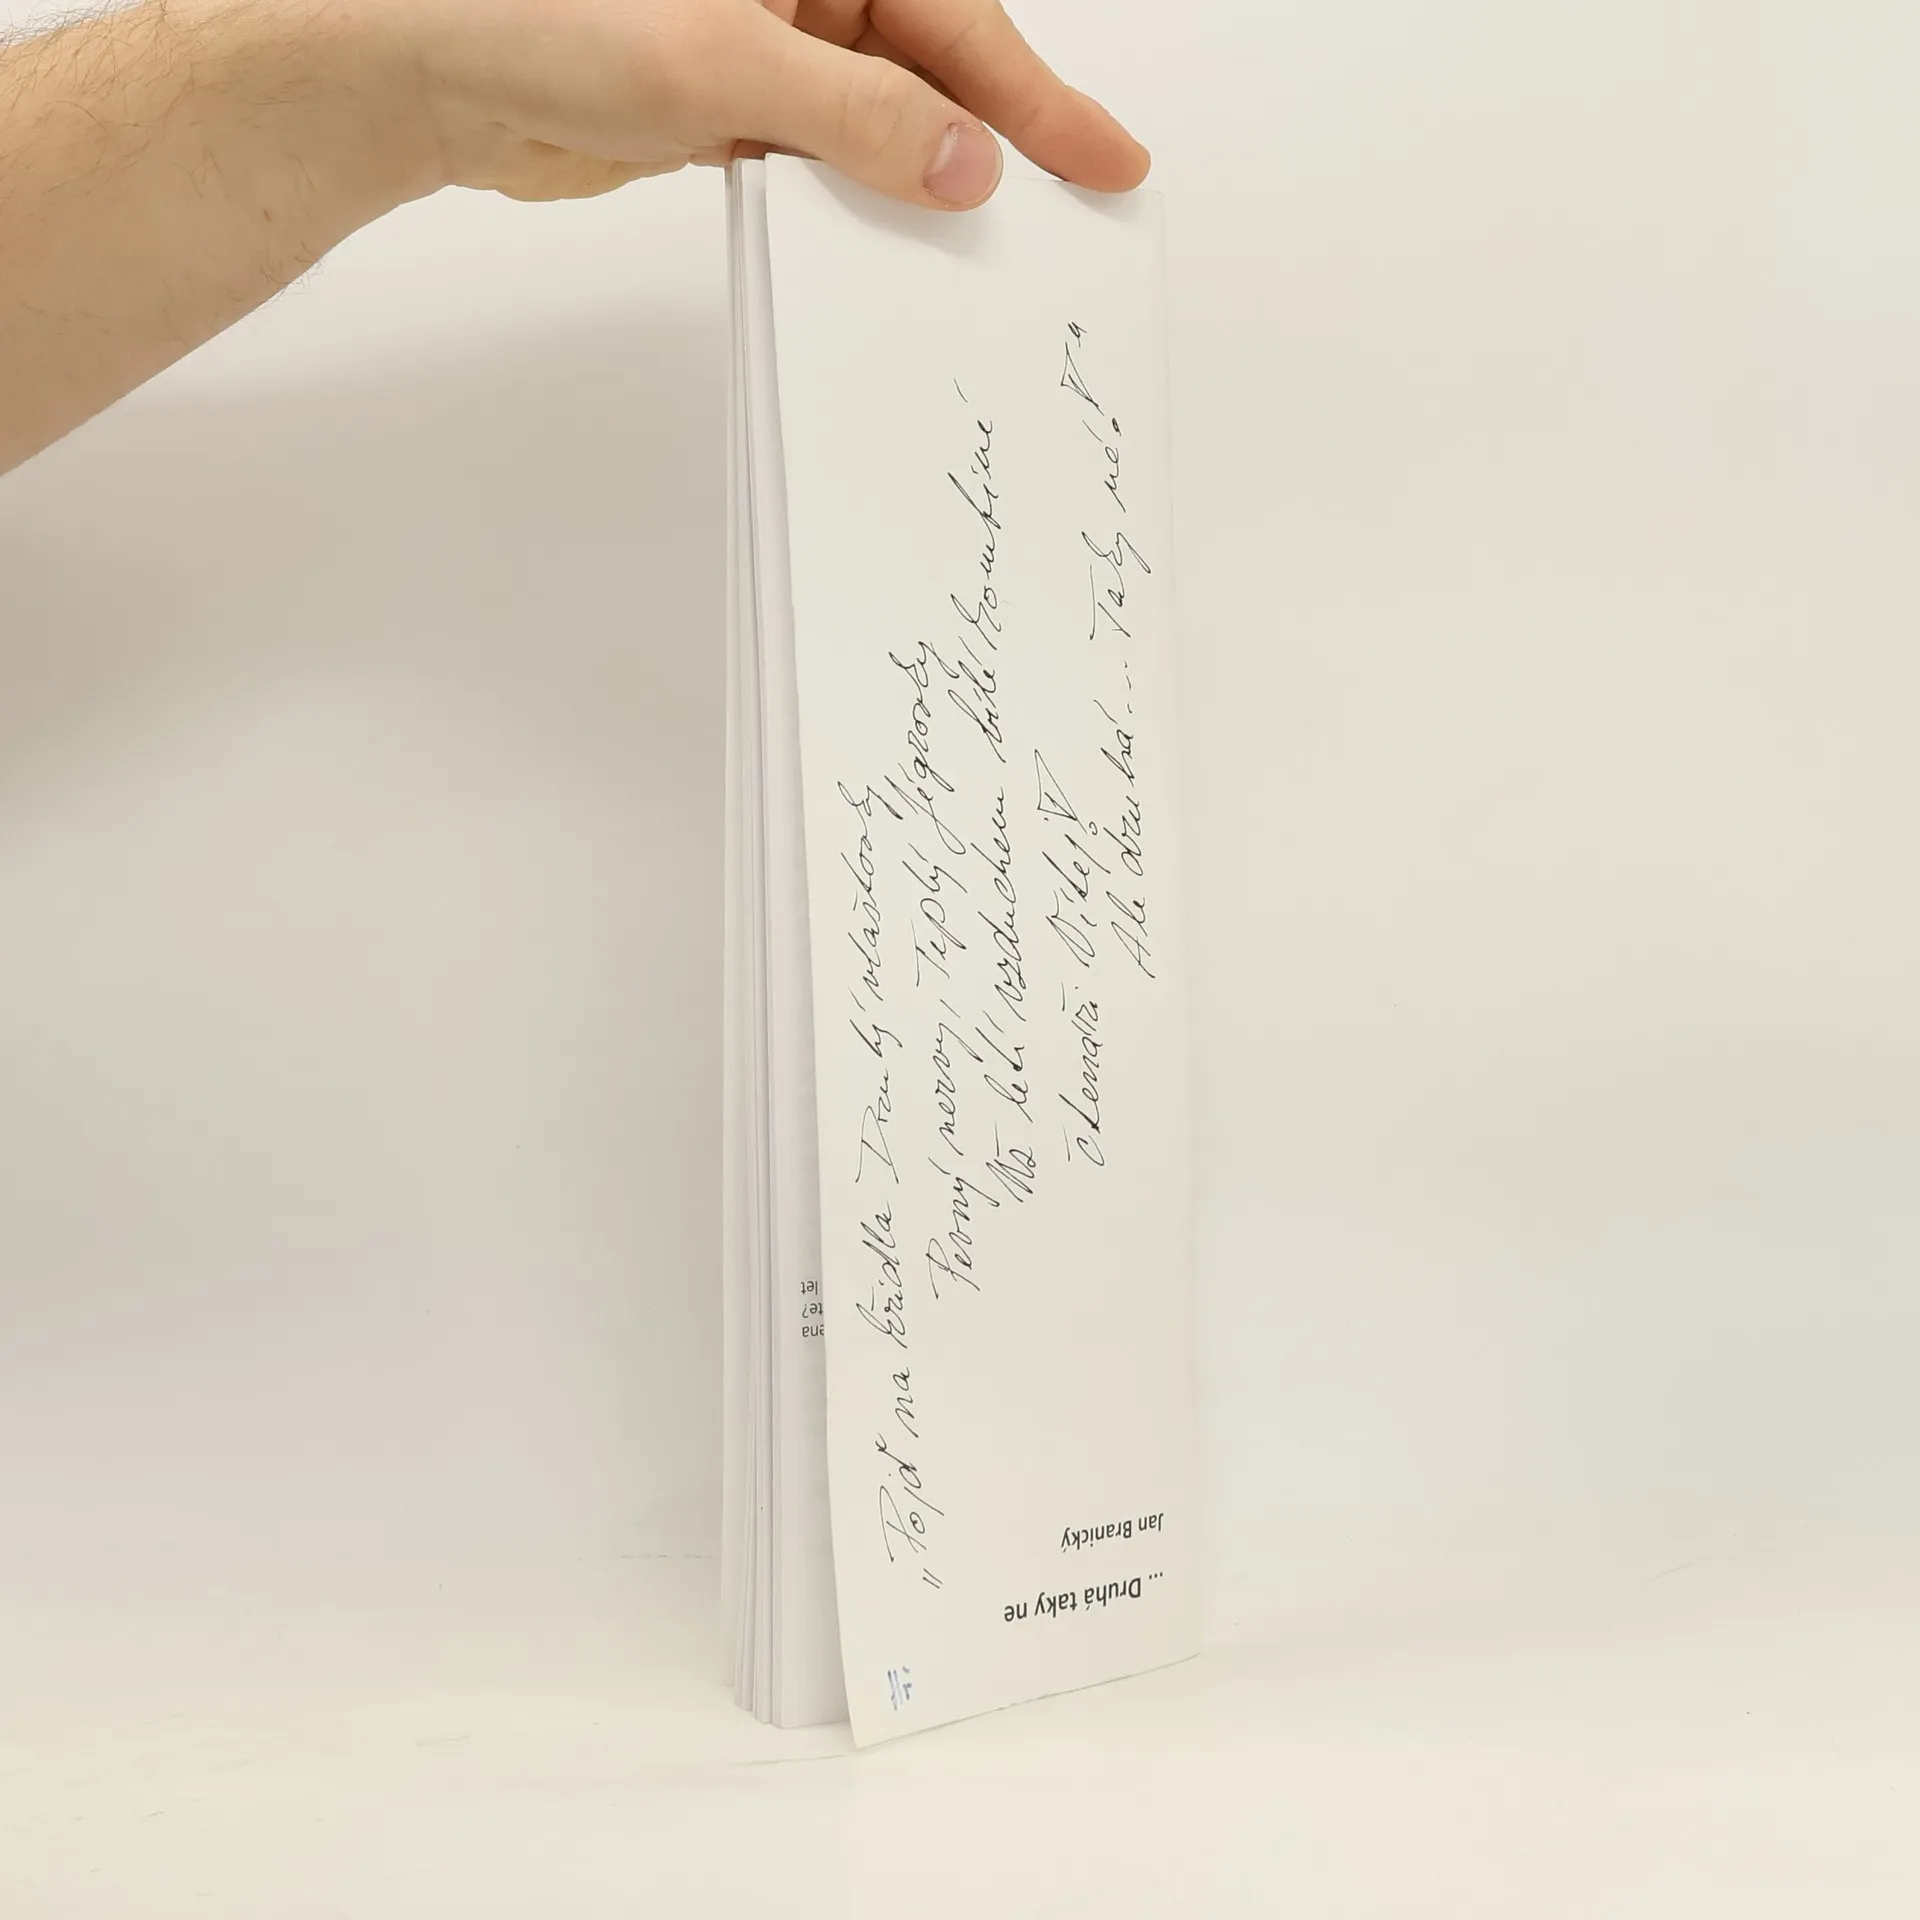 "Pojď na křídla Druhý vlaštovky
Pevný nervy, Teplý Jégrovky
Už letí vzduchem bílé
čtenáři Vítej!
Ale druhá... Taky né!"
Jan Branický
... Druhá taky ne
let
te?
ena